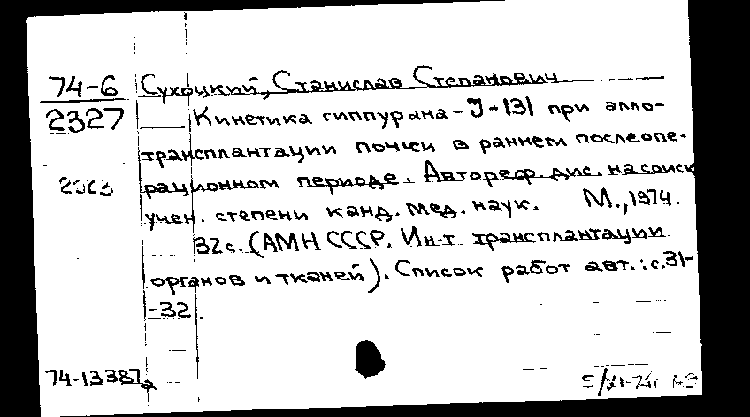 74-6 Сухоцкий, Станислав Степанович
2327 Кинетика гиппурана-J-131 при алло-
трансплантации почки в раннем послеопе-
рационном периоде. Автореф. дис. на соиск
учен. степени канд. мед. наук. М., 1974.
32 с. (АМН СССР. Ин-т трансплантации
органов и тканей). Список работ авт.: с. 31-
-32.
74-13387